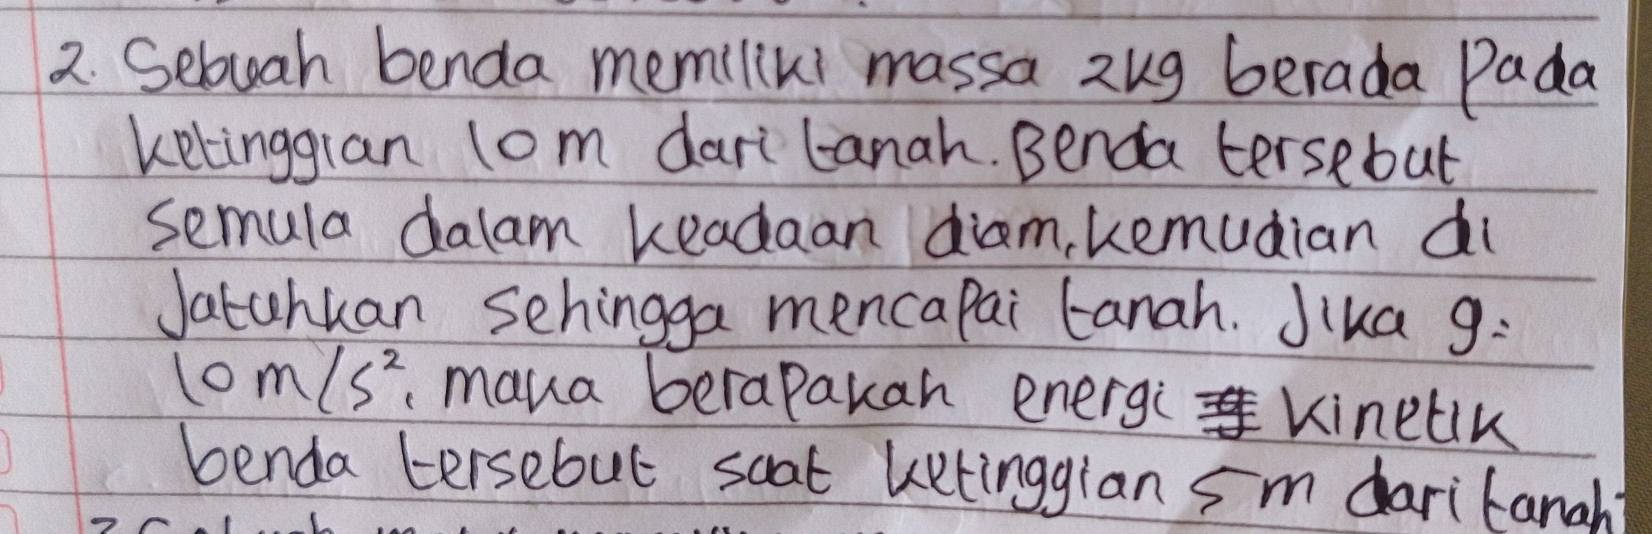 2. Sebuah benda memiliki massa 2kg berada Pada
ketinggian 10 m dari tanah. Benda tersebut
semula dalam keadaan diam, kemudian di
Jatuhkan sehingga mencapai tanah. Jika g=
10 m/s², maka berapakah energi kinetik
benda tersebut saat ketinggian 5 m dari tanah?